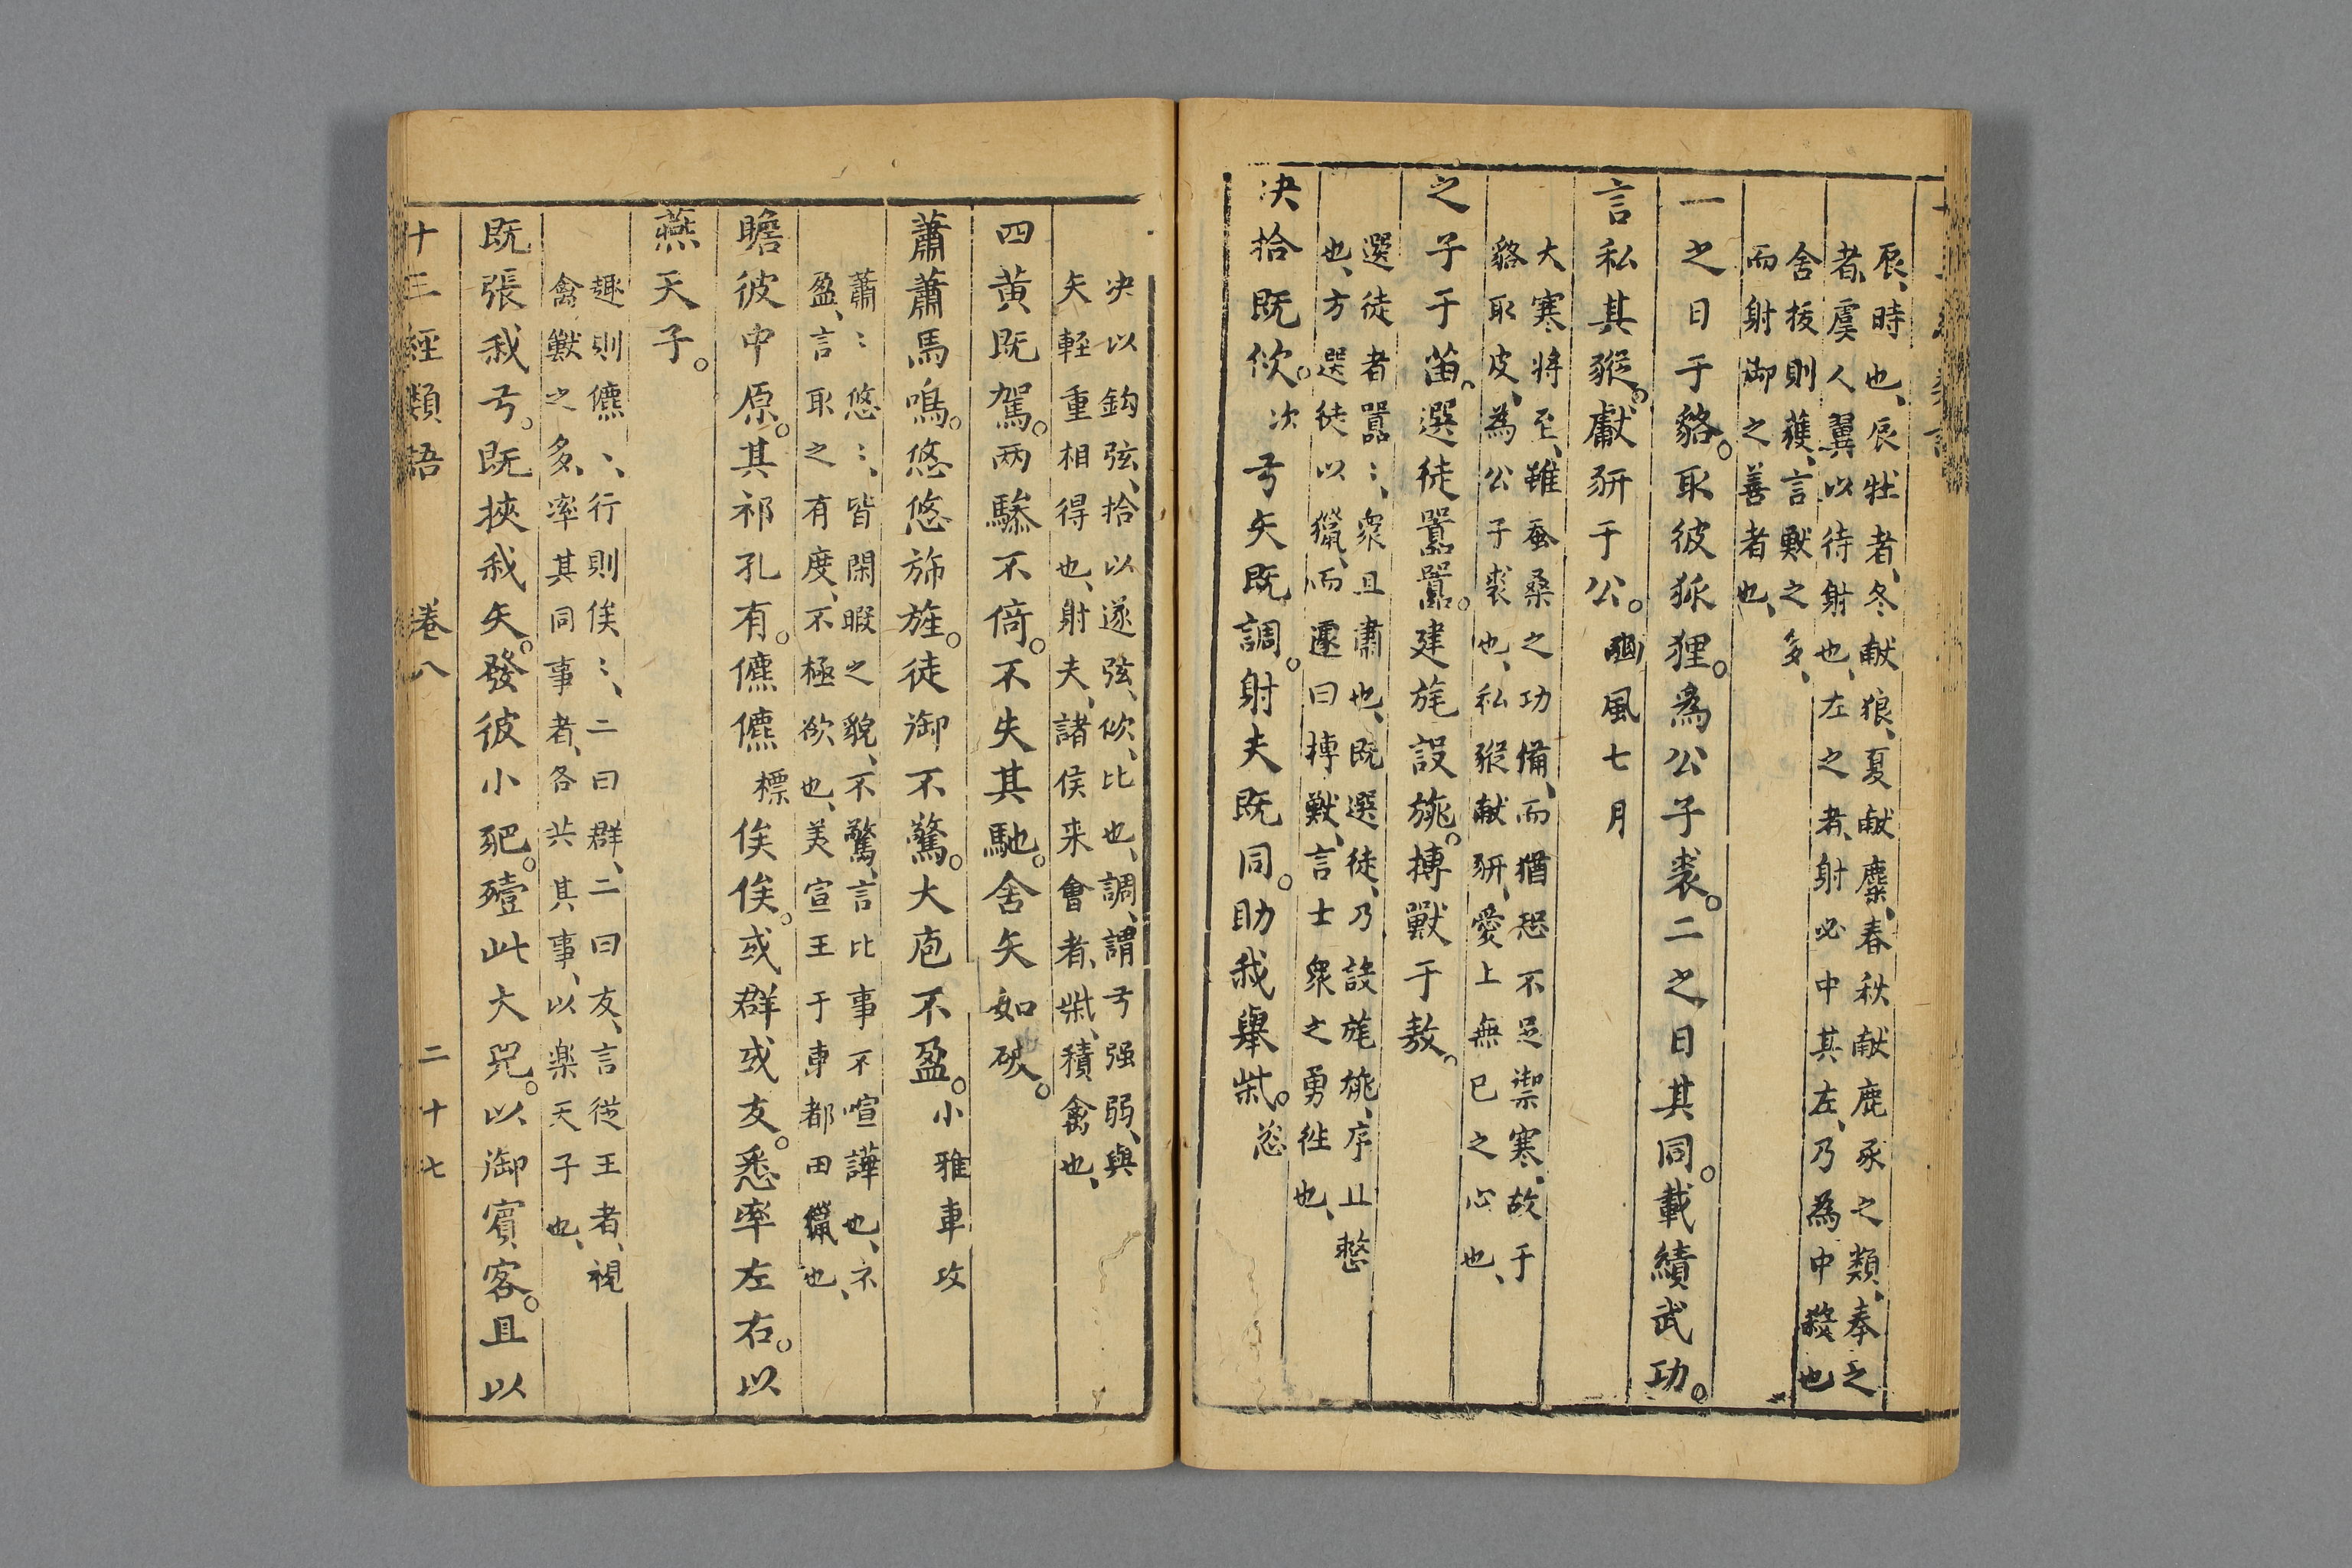 辰、時也、辰牡者、冬献狼、夏献麋、春秋献鹿豕之類、奉之
者、虞人翼以待射也、左之者、射必中其左、乃為中殺也
舍拔則獲、言獸之多、
而射御之善者也、
一之日于貉。取彼狐狸。為公子裘。二之日其同。載纘武功。
言私其豵。獻豜于公。豳風七月
大寒将至、雖蚕桑之功備、而猶恐不足禦寒、故于
貉取皮、為公子裘也、私豵献豜、愛上無已之心也、
之子于苗。選徒囂囂。建旄設旐。搏獸于敖。
選徒者囂〻、衆且肅也、既選徒、乃設旄旐、序且整
也、方選徒以獵、而遽曰搏獸、言士衆之勇徃也、
决拾既佽。次弓矢既調。射夫既同。助我舉柴。恣
决以鈎弦、拾以遂弦、佽、比也、調、謂弓强弱、與
矢輕重相得也、射夫、諸侯来會者、柴、積禽也、
四黄既駕。两驂不倚。不失其馳。舍矢如破。
蕭蕭馬鳴。悠悠旆旌。徒御不驚。大庖不盈。小雅車攻
蕭〻悠〻、皆閑暇之貌、不驚、言比事不喧譁也、不
盈、言取之有度、不極欲也、美宣王于東都田獵也、
瞻彼中原。其祁孔有。儦儦標俟俟。或群或友。悉率左右。以
燕天子。
趣則儦〻、行則俟〻、二曰群、二曰友、言従王者、視
禽獸之多、率其同事者、各共其事、以楽天子也、
既張我弓。既挾我矢。發彼小豝。殪此大兕。以御賓客。且以
十三經類語 卷八 二十七